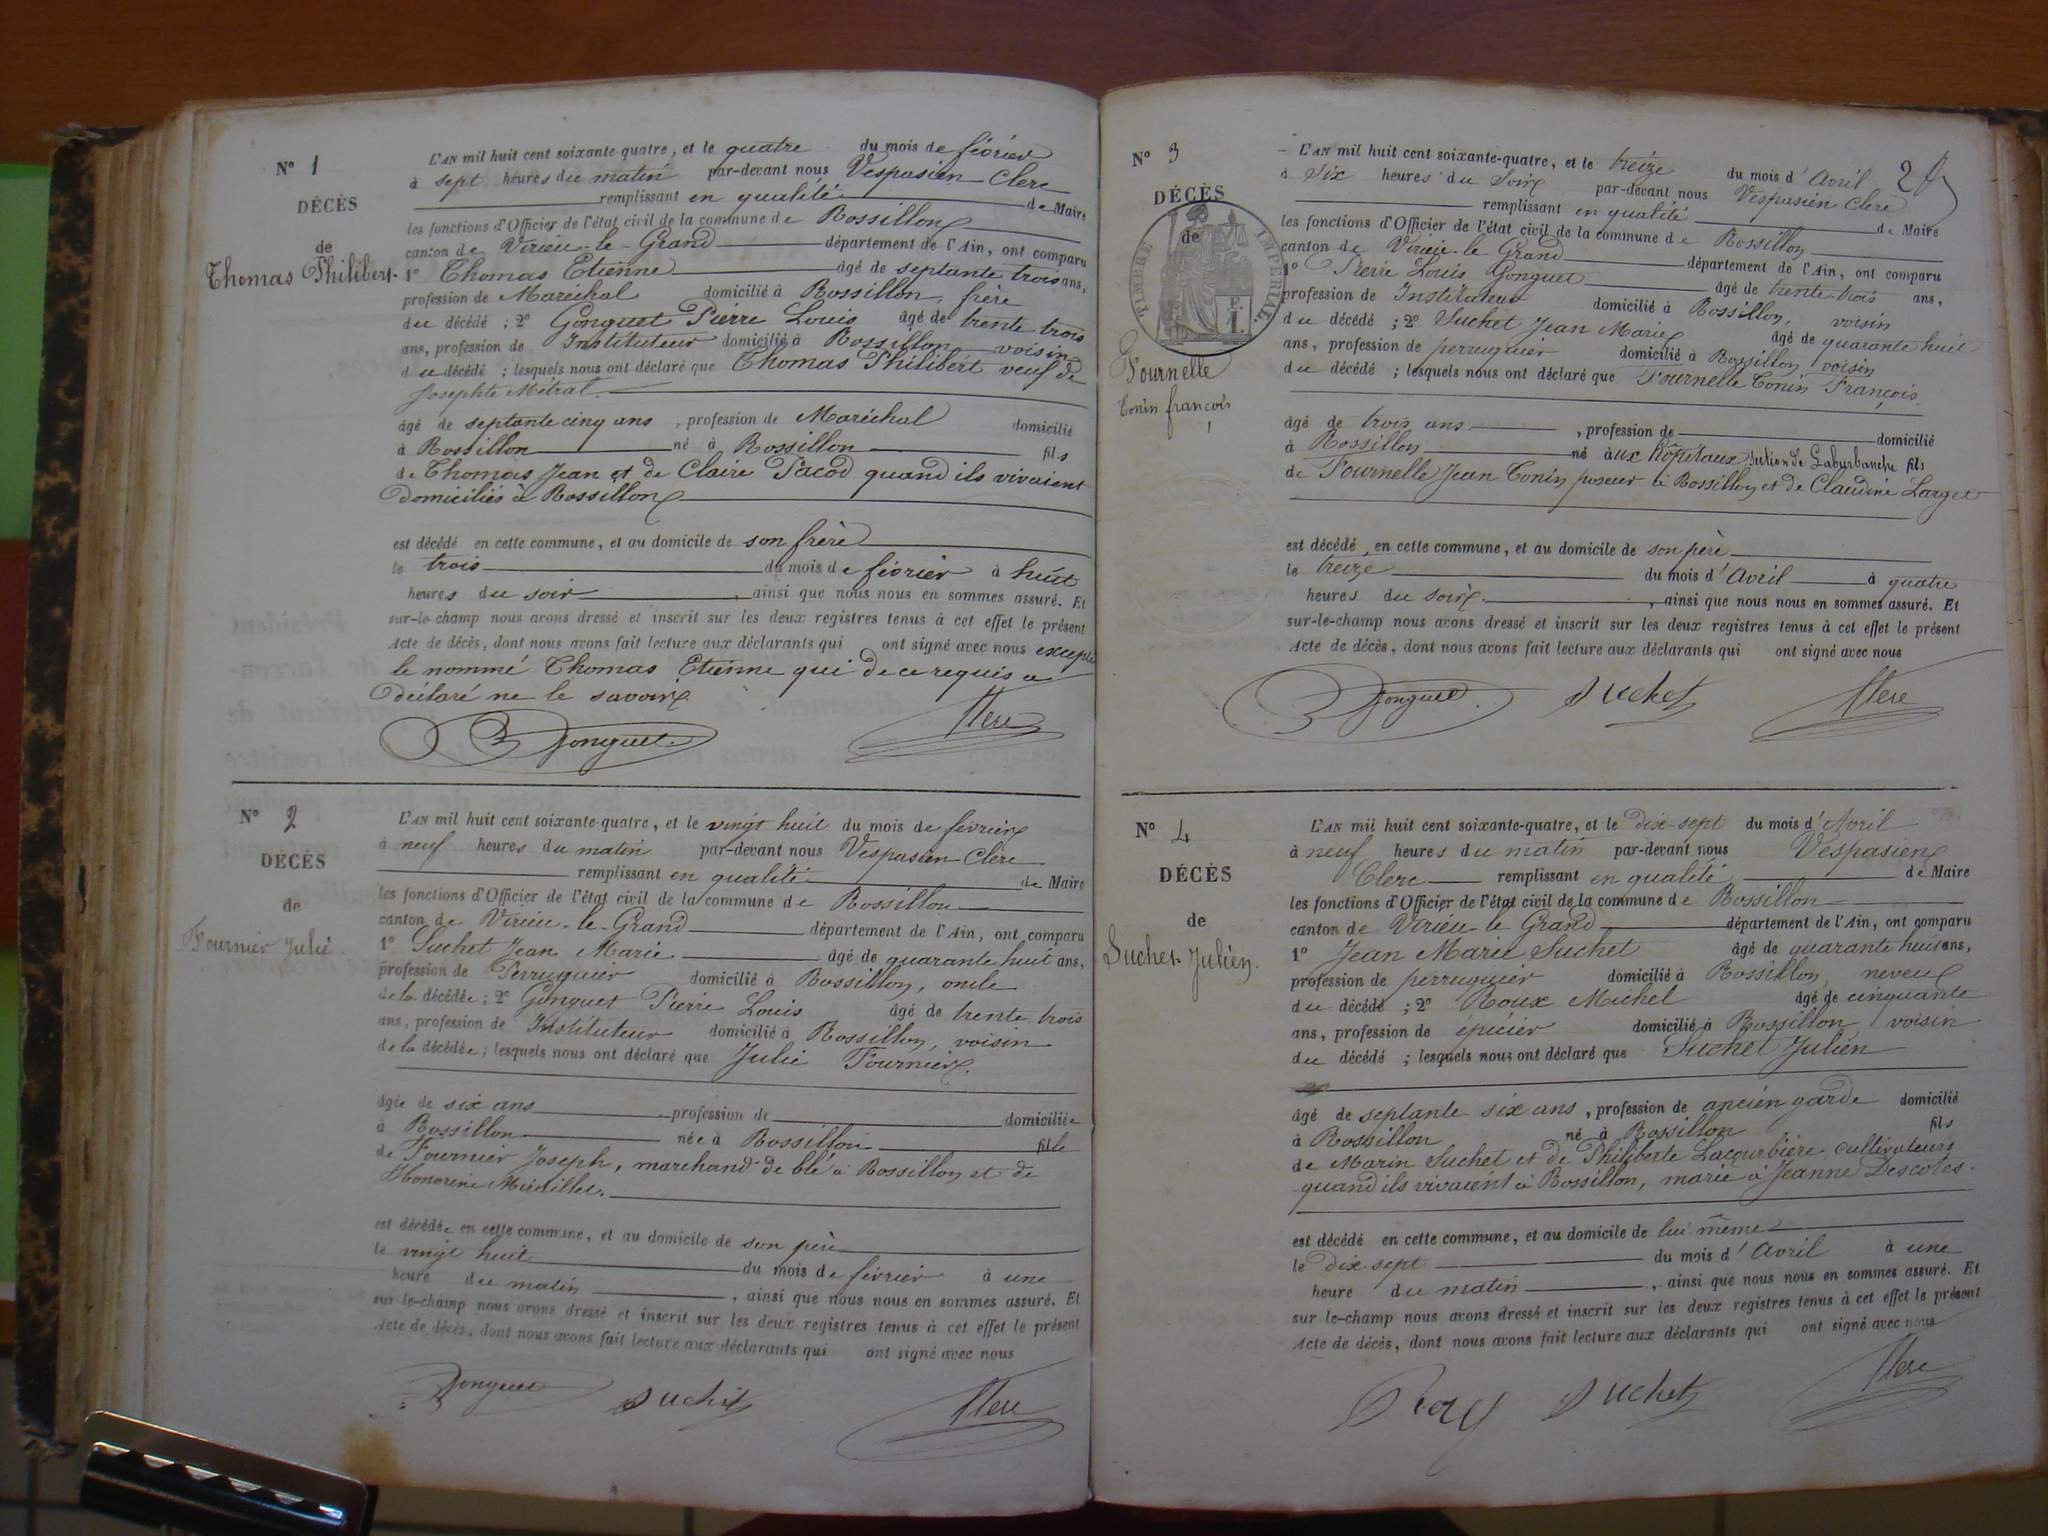 N° 1
DÉCÈS
de
Thomas Philibert
L'AN mil huit cent soixante-quatre, et le quatre du mois de février
à sept heures du matin par-devant nous Vespasien Clerc
remplissant en qualité de Maire
les fonctions d'Officier de l'état civil de la commune de Rossillon
canton de Virieu-le-Grand département de l'Ain, ont comparu
1° Thomas Etienne âgé de septante trois ans,
profession de Maréchal domicilié à Rossillon, frère
du décédé ; 2° Gonguet Pierre Louis âgé de trente trois
ans, profession de Instituteur domicilié à Rossillon voisin
du décédé ; lesquels nous ont déclaré que Thomas Philibert veuf de
Josephte Métral.
âgé de septante cinq ans, profession de Maréchal domicilié
à Rossillon né à Rossillon fils
de Thomas Jean et de Claire Pacod quand ils vivaient
domiciliés à Rossillon
est décédé en cette commune, et au domicile de son frère
le trois du mois de février à huit
heures du soir, ainsi que nous nous en sommes assuré. Et
sur-le-champ nous avons dressé et inscrit sur les deux registres tenus à cet effet le présent
Acte de décès, dont nous avons fait lecture aux déclarants qui ont signé avec nous excepté
le nommé Thomas Etienne qui de ce requis a
déclaré ne le savoir.
Gonguet. Clerc
N° 2
DÉCÈS
de
Fournier Julie.
L'AN mil huit cent soixante-quatre, et le vingt huit du mois de février
à neuf heures du matin par-devant nous Vespasien Clerc
remplissant en qualité de Maire
les fonctions d'Officier de l'état civil de la commune de Rossillon
canton de Virieu-le-Grand département de l'Ain, ont comparu
1° Suchet Jean Marie âgé de quarante huit ans,
profession de Perruquier domicilié à Rossillon, oncle
de la décédée ; 2° Gonguet Pierre Louis âgé de trente trois
ans, profession de Instituteur domicilié à Rossillon, voisin
de la décédée ; lesquels nous ont déclaré que Julie Fournier.
âgée de six ans profession de domiciliée
à Rossillon née à Rossillon fille
de Fournier Joseph, marchand de blé à Rossillon et de
Honorine Miraillet.
est décédée en cette commune, et au domicile de son père
le vingt huit du mois de février à une
heure du matin, ainsi que nous nous en sommes assuré. Et
sur-le-champ nous avons dressé et inscrit sur les deux registres tenus à cet effet le présent
Acte de décès, dont nous avons fait lecture aux déclarants qui ont signé avec nous
Gonguet Suchet Clerc
2
N° 3
DÉCÈS
de
TIMBRE IMPÉRIAL
Fournelle
Tonin françois
L'AN mil huit cent soixante-quatre, et le treize du mois d'Avril
à six heures du Soir par-devant nous Vespasien Clerc
remplissant en qualité de Maire
les fonctions d'Officier de l'état civil de la commune de Rossillon
canton de Virieu-le-Grand département de l'Ain, ont comparu
1° Pierre Louis Gonguet âgé de trente-trois ans,
profession de Instituteur domicilié à Rossillon, voisin
du décédé ; 2° Suchet Jean Marie âgé de quarante huit
ans, profession de perruquier domicilié à Rossillon, voisin
du décédé ; lesquels nous ont déclaré que Fournelle Tonin François.
âgé de trois ans, profession de domicilié
à Rossillon né aux hôpitaux fils
de Fournelle Jean Tonin poseur à Rossillon et de Claudine Larget
est décédé en cette commune, et au domicile de son père
le treize du mois d'Avril à quatre
heures du soir, ainsi que nous nous en sommes assuré. Et
sur-le-champ nous avons dressé et inscrit sur les deux registres tenus à cet effet le présent
Acte de décès, dont nous avons fait lecture aux déclarants qui ont signé avec nous
Gonguet. Suchet Clerc
N° 4
DÉCÈS
de
Suchet Julien.
L'AN mil huit cent soixante-quatre, et le dix-sept du mois d'Avril
à neuf heures du matin par-devant nous Vespasien
Clerc remplissant en qualité de Maire
les fonctions d'Officier de l'état civil de la commune de Rossillon
canton de Virieu le Grand département de l'Ain, ont comparu
1° Jean Marie Suchet âgé de quarante huit ans,
profession de perruquier domicilié à Rossillon, neveu
du décédé ; 2° Roux Michel âgé de cinquante
ans, profession de épicier domicilié à Rossillon, voisin
du décédé ; lesquels nous ont déclaré que Suchet Julien
âgé de septante six ans, profession de ancien garde domicilié
à Rossillon né à Rossillon fils
de Marin Suchet et de Philiberte Lacourbière cultivateurs
quand ils vivaient à Rossillon, marié à Jeanne Descotes.
est décédé en cette commune, et au domicile de lui même
le dix sept du mois d'Avril à une
heure du matin, ainsi que nous nous en sommes assuré. Et
sur-le-champ nous avons dressé et inscrit sur les deux registres tenus à cet effet le présent
Acte de décès, dont nous avons fait lecture aux déclarants qui ont signé avec nous
Suchet Clerc